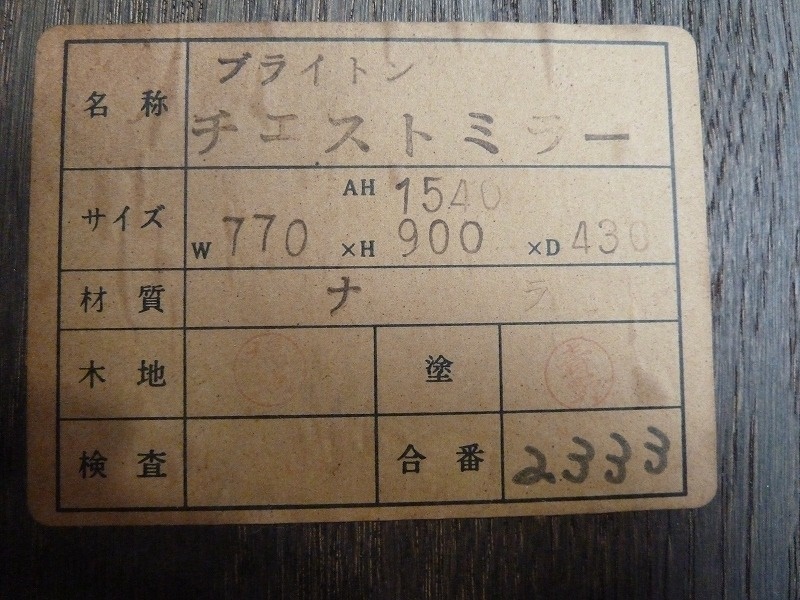 名称 ブライトン
チエストミラー
サイズ AH 1540
W 770 ×H 900 ×D 430
材質 ナラ
木地 塗
検査 合番 2333